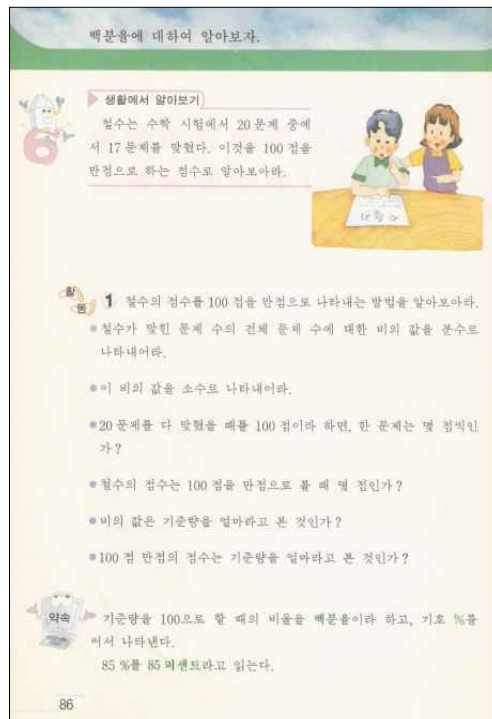 백분율에 대하여 알아보자.
생활에서 알아보기
철수는 수학 시험에서 20 문제 중에
서 17 문제를 맞혔다. 이것을 100 점을
만점으로 하는 점수로 알아보아라.
6
활
동
1 철수의 점수를 100 점을 만점으로 나타내는 방법을 알아보아라.
철수가 맞힌 문제 수의 전체 문제 수에 대한 비의 값을 분수로
나타내어라.
이 비의 값을 소수로 나타내어라.
20 문제를 다 맞혔을 때를 100 점이라 하면, 한 문제는 몇 점씩인
가?
철수의 점수는 100 점을 만점으로 볼 때 몇 점인가?
비의 값은 기준량을 얼마라고 본 것인가?
100 점 만점의 점수는 기준량을 얼마라고 본 것인가?
약속
기준량을 100으로 할 때의 비율을 백분율이라 하고, 기호 %를
써서 나타낸다.
85 %를 85 퍼센트라고 읽는다.
86